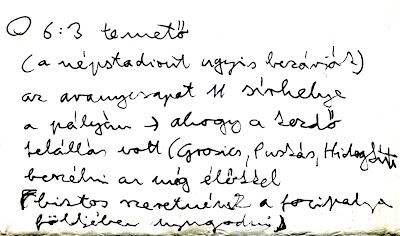 6:3 temető
(a népstadiont úgyis bezárják)
az aranycsapat 11 sírhelye
a pályán → ahogy a kezdő
felállás volt (Grosics, Puskás, Hidegkúti
beszélni az még élőkkel
(biztos szeretnének a focipálya
földjében nyugodni)